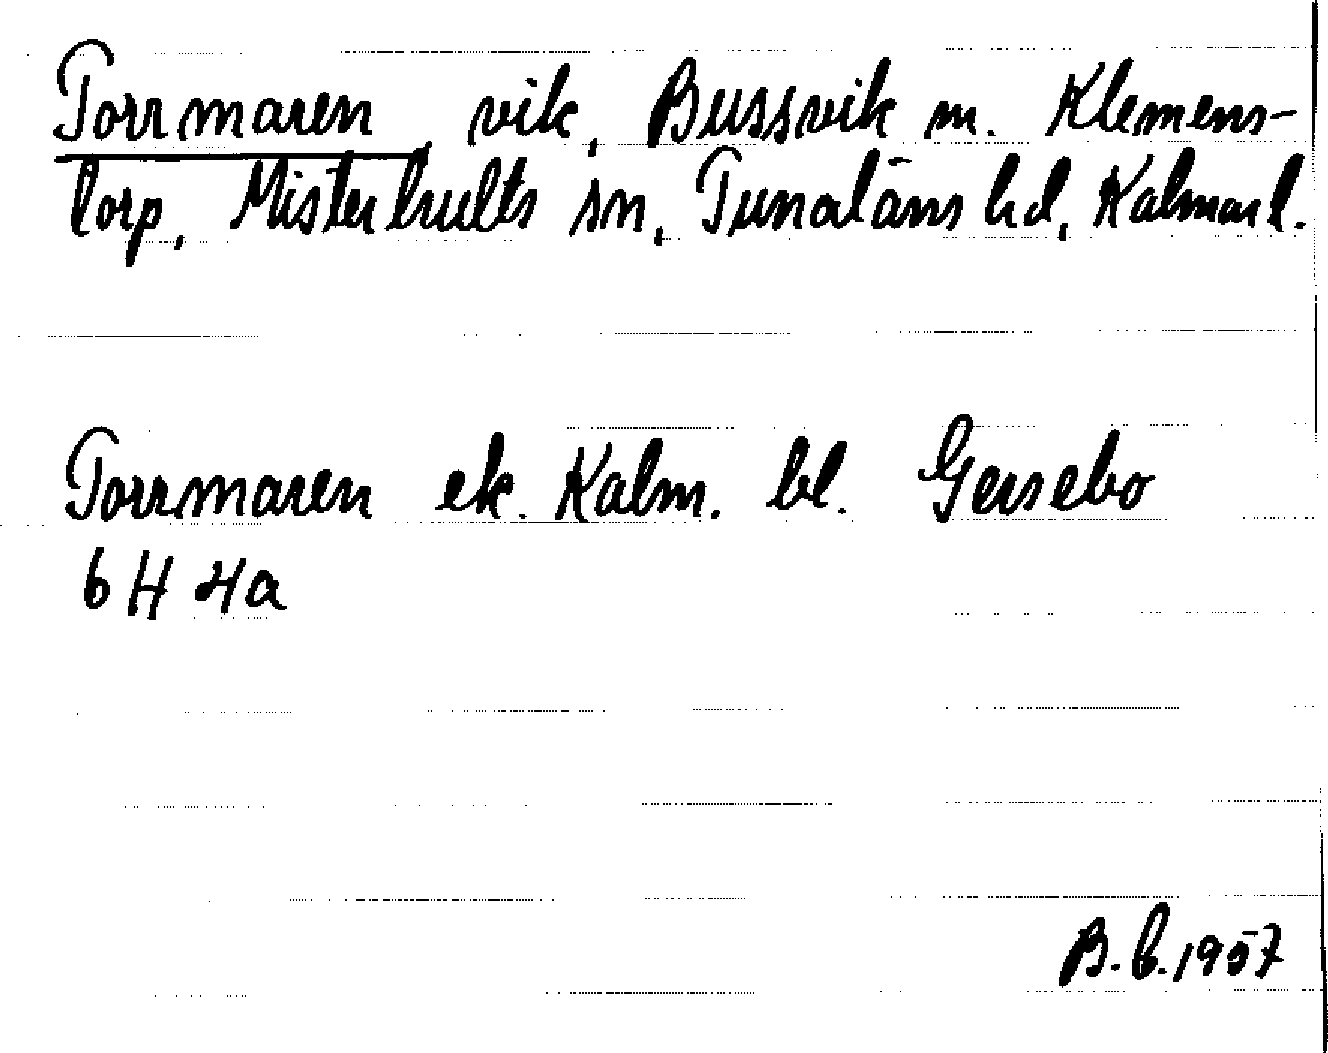 Torrmaren vik, Bussvik m. Klemens-
torp, Misterhults sn, Tunaläns hd, Kalmar l.
Torrmaren ek. Kalm. bl. Gersebo
6 H 4a
B.L. 1957